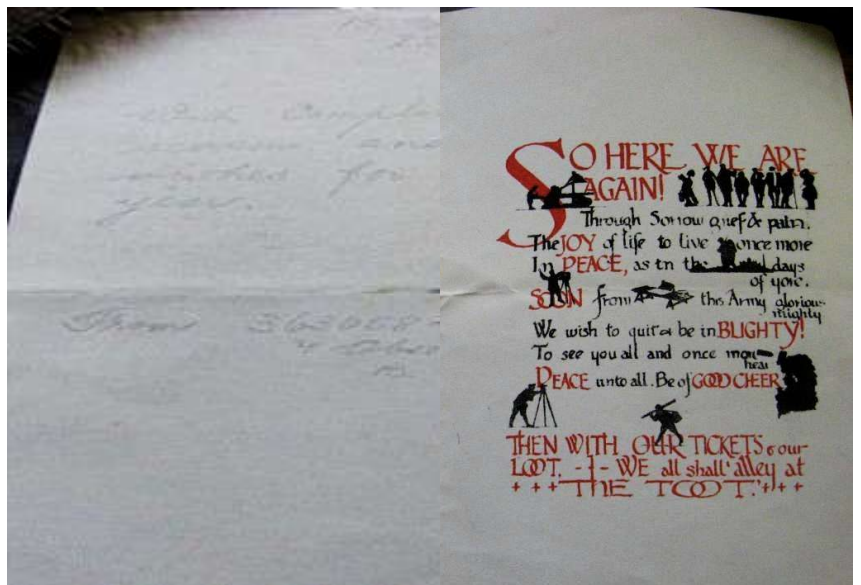 With Compli
season and
wishes for
year.
From
SO HERE WE ARE
AGAIN!
Through Sorrow grief & pain.
The JOY of life to live once more
In PEACE, as in the days
of yore.
SOON from this Army glorious
mighty
We wish to quit & be in BLIGHTY!
To see you all and once more
hear
PEACE unto all. Be of GOOD CHEER
THEN WITH OUR TICKETS & our
LOOT. - WE all shall 'alley at
+ + + THE TOOT.' + + +